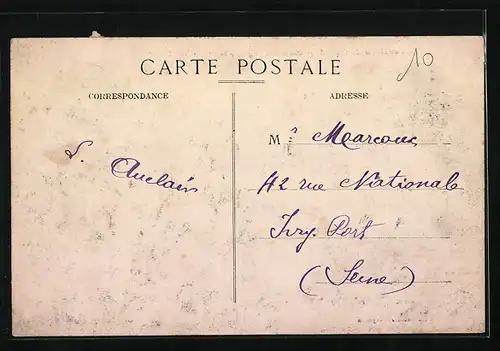 10
CARTE POSTALE
CORRESPONDANCE
ADRESSE
L. Auclair
M. Marcoux
42 rue Nationale
Ivry. Port
(Seine)